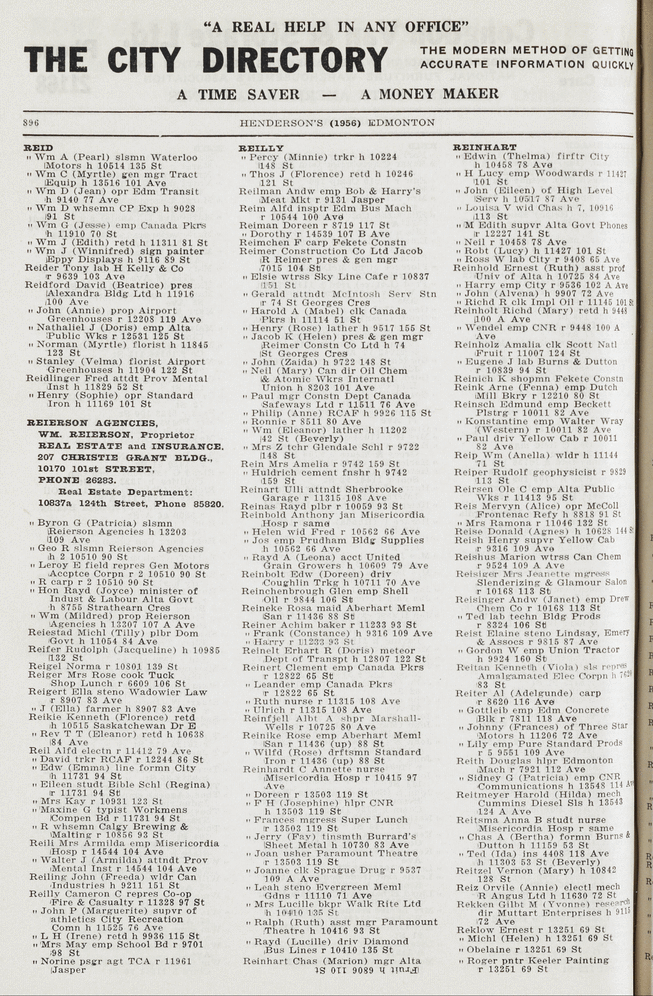 "A REAL HELP IN ANY OFFICE"
THE CITY DIRECTORY
THE MODERN METHOD OF GETTING
ACCURATE INFORMATION QUICKLY
A TIME SAVER — A MONEY MAKER
896
HENDERSON'S (1956) EDMONTON
REID
" Wm A (Pearl) slsmn Waterloo
Motors h 10514 135 St
" Wm C (Myrtle) gen mgr Tract
Equip h 13516 101 Ave
" Wm D (Jean) opr Edm Transit
h 9140 77 Ave
" Wm D whsemn CP Exp h 9028
91 St
" Wm G (Jesse) emp Canada Pkrs
h 11910 70 St
" Wm J (Edith) retd h 11311 81 St
" Wm J (Winnifred) sign painter
Eppy Displays h 9116 89 St
Reider Tony lab H Kelly & Co
r 9639 103 Ave
Reidford David (Beatrice) pres
Alexandra Bldg Ltd h 11916
100 Ave
" John (Annie) prop Airport
Greenhouses r 12208 119 Ave
" Nathaliel J (Doris) emp Alta
Public Wks r 12531 125 St
" Norman (Myrtle) florist h 11845
123 St
" Stanley (Velma) florist Airport
Greenhouses h 11904 122 St
Reidlinger Fred attdt Prov Mental
Inst h 11829 52 St
" Henry (Sophie) opr Standard
Iron h 11169 101 St
REIERSON AGENCIES,
WM. REIERSON, Proprietor
REAL ESTATE and INSURANCE.
207 CHRISTIE GRANT BLDG.,
10170 101st STREET,
PHONE 26283.
Real Estate Department:
10837a 124th Street, Phone 85820.
" Byron G (Patricia) slsmn
Reierson Agencies h 13203
109 Ave
" Geo R slsmn Reierson Agencies
h 2 10510 90 St
" Leroy E field repres Gen Motors
Acceptce Corpn r 2 10510 90 St
" R carp r 2 10510 90 St
" Hon Rayd (Joyce) minister of
Indust & Labour Alta Govt
h 8755 Strathearn Cres
" Wm (Mildred) prop Reierson
Agencies h 13207 107 A Ave
Reiestad Michl (Tilly) plbr Dom
Govt h 11054 84 Ave
Reifer Rudolph (Jacqueline) h 10985
132 St
Reigel Norma r 10801 139 St
Reiger Mrs Rose cook Tuck
Shop Lunch r 6609 106 St
Reigert Ella steno Wadowier Law
r 8907 83 Ave
" J (Ella) farmer h 8907 83 Ave
Reikie Kenneth (Florence) retd
h 10515 Saskatchewan Dr E
" Rev T T (Eleanor) retd h 10638
84 Ave
Reil Alfd electn r 11412 79 Ave
" David trkr RCAF r 12244 86 St
" Edw (Emma) line formn City
h 11731 94 St
" Eileen studt Bible Schl (Regina)
r 11731 94 St
" Mrs Kay r 10931 123 St
" Maxine G typist Workmens
Compen Bd r 11731 94 St
" R whsemn Calgy Brewing &
Malting r 10856 93 St
Reili Mrs Armilda emp Misericordia
Hosp r 14544 104 Ave
" Walter J (Armilda) attndt Prov
Mental Inst r 14544 104 Ave
Reiling John (Freeda) wldr Can
Industries h 9211 151 St
Reilly Cameron C repres Co-op
Fire & Casualty r 11328 97 St
" John P (Marguerite) supvr of
athletics City Recreation
Comn h 11525 76 Ave
" L H (Irene) retd h 9936 115 St
" Mrs May emp School Bd r 9701
98 St
" Norine psgr agt TCA r 11961
Jasper
REILLY
" Percy (Minnie) trkr h 10224
148 St
" Thos J (Florence) retd h 10246
121 St
Reilman Andw emp Bob & Harry's
Meat Mkt r 9131 Jasper
Reim Alfd insptr Edm Bus Mach
r 10544 100 Ave
Reiman Doreen r 8719 117 St
" Dorothy r 14539 107 B Ave
Reimchen F carp Fekete Constn
Reimer Construction Co Ltd Jacob
R Reimer pres & gen mgr
7015 104 St
" Elsie wtrss Sky Line Cafe r 10837
151 St
" Gerald attndt McIntosh Serv Stn
r 74 St Georges Cres
" Harold A (Mabel) clk Canada
Pkrs h 11114 51 St
" Henry (Rose) lather h 9517 155 St
" Jacob K (Helen) pres & gen mgr
Reimer Constn Co Ltd h 74
St Georges Cres
" John (Zaida) h 9722 148 St
" Neil (Mary) Can dir Oil Chem
& Atomic Wkrs Internatl
Union h 8203 101 Ave
" Paul mgr Constn Dept Canada
Safeways Ltd r 12511 76 Ave
" Philip (Anne) RCAF h 9926 115 St
" Ronnie r 8511 80 Ave
" Wm (Eleanor) lather h 11202
42 St (Beverly)
" Mrs Z tchr Glendale Schl r 9722
148 St
Rein Mrs Amelia r 9742 159 St
" Huldrich cement fnshr h 9742
159 St
Reinart Ulli attndt Sherbrooke
Garage r 11315 108 Ave
Reinas Rayd plbr r 10059 93 St
Reinbold Anthony jan Misericordia
Hosp r same
" Helen wid Fred r 10562 66 Ave
" Jos emp Prudham Bldg Supplies
h 10562 66 Ave
" Rayd A (Leona) acct United
Grain Growers h 10609 79 Ave
Reinbolt Edw (Doreen) driv
Coughlin Trkg h 10711 70 Ave
Reinchenbrough Glen emp Shell
Oil r 9844 106 St
Reineke Rosa maid Aberhart Meml
San r 11436 88 St
Reiner Achim baker r 11233 93 St
" Frank (Constance) h 9316 109 Ave
" Harry r 11233 93 St
Reinelt Erhart R (Doris) meteor
Dept of Transpt h 12807 122 St
Reinert Clement emp Canada Pkrs
r 12822 65 St
" Leander emp Canada Pkrs
r 12822 65 St
" Ruth nurse r 11315 108 Ave
" Ulrich r 11315 108 Ave
Reinfjell Albt A shpr Marshall-
Wells r 10725 80 Ave
Reinike Rose emp Aberhart Meml
San r 11436 (up) 88 St
" Wilfd (Rose) drftsmn Standard
Iron r 11436 (up) 88 St
Reinhardt C Annette nurse
Misericordia Hosp r 10415 97
Ave
" Doreen r 13503 119 St
" F H (Josephine) hlpr CNR
h 13503 119 St
" Frances mgress Super Lunch
r 13503 119 St
" Jerry (Fay) tinsmth Burrard's
Sheet Metal h 10730 83 Ave
" Joan usher Paramount Theatre
r 13503 119 St
" Joanne clk Sprague Drug r 9537
109 A Ave
" Leah steno Evergreen Meml
Gdns r 11110 71 Ave
" Mrs Lucille bkpr Walk Rite Ltd
h 10410 135 St
" Ralph (Ruth) asst mgr Paramount
Theatre h 10416 93 St
" Rayd (Lucille) driv Diamond
Bus Lines r 10410 135 St
Reinhart Chas (Marion) mgr Alta
Fruit h 9089 110 St
REINHART
" Edwin (Thelma) firftr City
h 10458 78 Ave
" H Lucy emp Woodwards r 11427
101 St
" John (Eileen) of High Level
Serv h 10517 87 Ave
" Louisa V wid Chas h 7, 10916
113 St
" M Edith supvr Alta Govt Phones
r 12227 141 St
" Neil r 10458 78 Ave
" Robt (Lucy) h 11427 101 St
" Ross W lab City r 9408 65 Ave
Reinhold Ernest (Ruth) asst prof
Univ of Alta h 10725 84 Ave
" Harry emp City r 9536 102 A Ave
" John (Alvena) h 9907 72 Ave
" Richd R clk Impl Oil r 11145 101 St
Reinholt Richd (Mary) retd h 9448
100 A Ave
" Wendel emp CNR r 9448 100 A
Ave
Reinholz Amalia clk Scott Natl
Fruit r 11007 124 St
" Eugene J lab Burns & Dutton
r 10839 94 St
Reinich K shopmn Fekete Constn
Reink Arne (Fenna) emp Dutch
Mill Bkry r 12210 80 St
Reinsch Edmund emp Beckett
Plstrg r 10011 82 Ave
" Konstantine emp Walter Wray
(Western) r 10011 82 Ave
" Paul driv Yellow Cab r 10011
82 Ave
Reip Wm (Anella) wldr h 11144
71 St
Reiper Rudolf geophysicist r 9829
113 St
Reirsen Ole C emp Alta Public
Wks r 11413 95 St
Reis Mervyn (Alice) opr McColl
Frontenac Refy h 8818 91 St
" Mrs Ramona r 11046 132 St
Reise Donald (Agnes) h 10628 144 St
Reish Henry supr Yellow Cab
r 9316 109 Ave
Reishus Marion wtrss Can Chem
r 9524 109 A Ave
Reisiger Mrs Jeanette mgress
Slenderizing & Glamour Salon
r 10168 113 St
Reisinger Andw (Janet) emp Drew
Chem Co r 10168 113 St
" Ted lab techn Bldg Prods
r 8324 106 St
Reist Elaine steno Lindsay, Emery
& Assocs r 9815 87 Ave
" Gordon W emp Union Tractor
h 9924 160 St
Reitan Kenneth (Viola) sls repres
Amalgamated Elec Corpn h 7629
83 St
Reiter Al (Adelgunde) carp
r 8620 116 Ave
" Gottlieb emp Edm Concrete
Blk r 7811 118 Ave
" Johnny (Frances) of Three Star
Motors h 11206 72 Ave
" Lily emp Pure Standard Prods
r 5 9551 109 Ave
Reith Douglas hlpr Edmonton
Mach r 7921 112 Ave
" Sidney G (Patricia) emp CNR
Communications h 13548 114 Ave
Reitmeyer Harold (Hilda) mech
Cummins Diesel Sls h 13543
124 A Ave
Reitsma Anna B studt nurse
Misericordia Hosp r same
" Chas A (Bertha) formn Burns &
Dutton h 11159 53 St
" Ted (Ida) ins 4408 118 Ave
h 11303 53 St (Beverly)
Reitzel Vernon (Mary) h 10842
128 St
Reiz Orville (Annie) electl mech
R Angus Ltd h 11630 72 St
Rekken Gilbt M (Yvonne) research
dir Muttart Enterprises h 9115
72 Ave
Reklow Ernest r 13251 69 St
" Michl (Helen) h 13251 69 St
" Obelaine r 13251 69 St
" Roger pntr Keeler Painting
r 13251 69 St